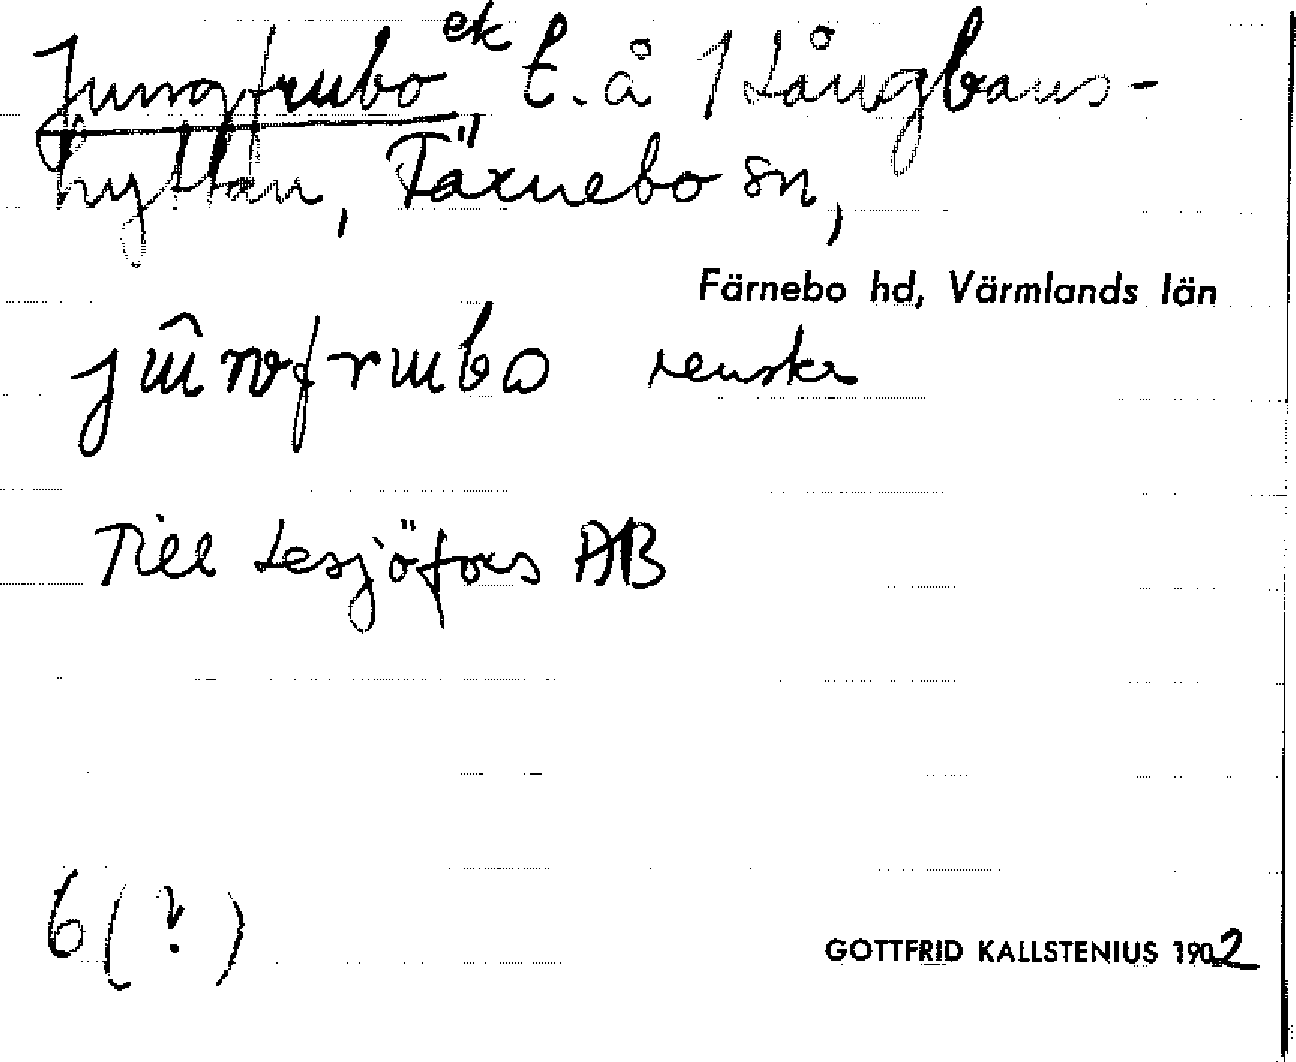 Jungfrubo ek t.å 1 Långbans-
hyttan, Färnebo sn,
Färnebo hd, Värmlands län
Till Lesjöfors AB
6 (?)
GOTTFRID KALLSTENIUS 1902